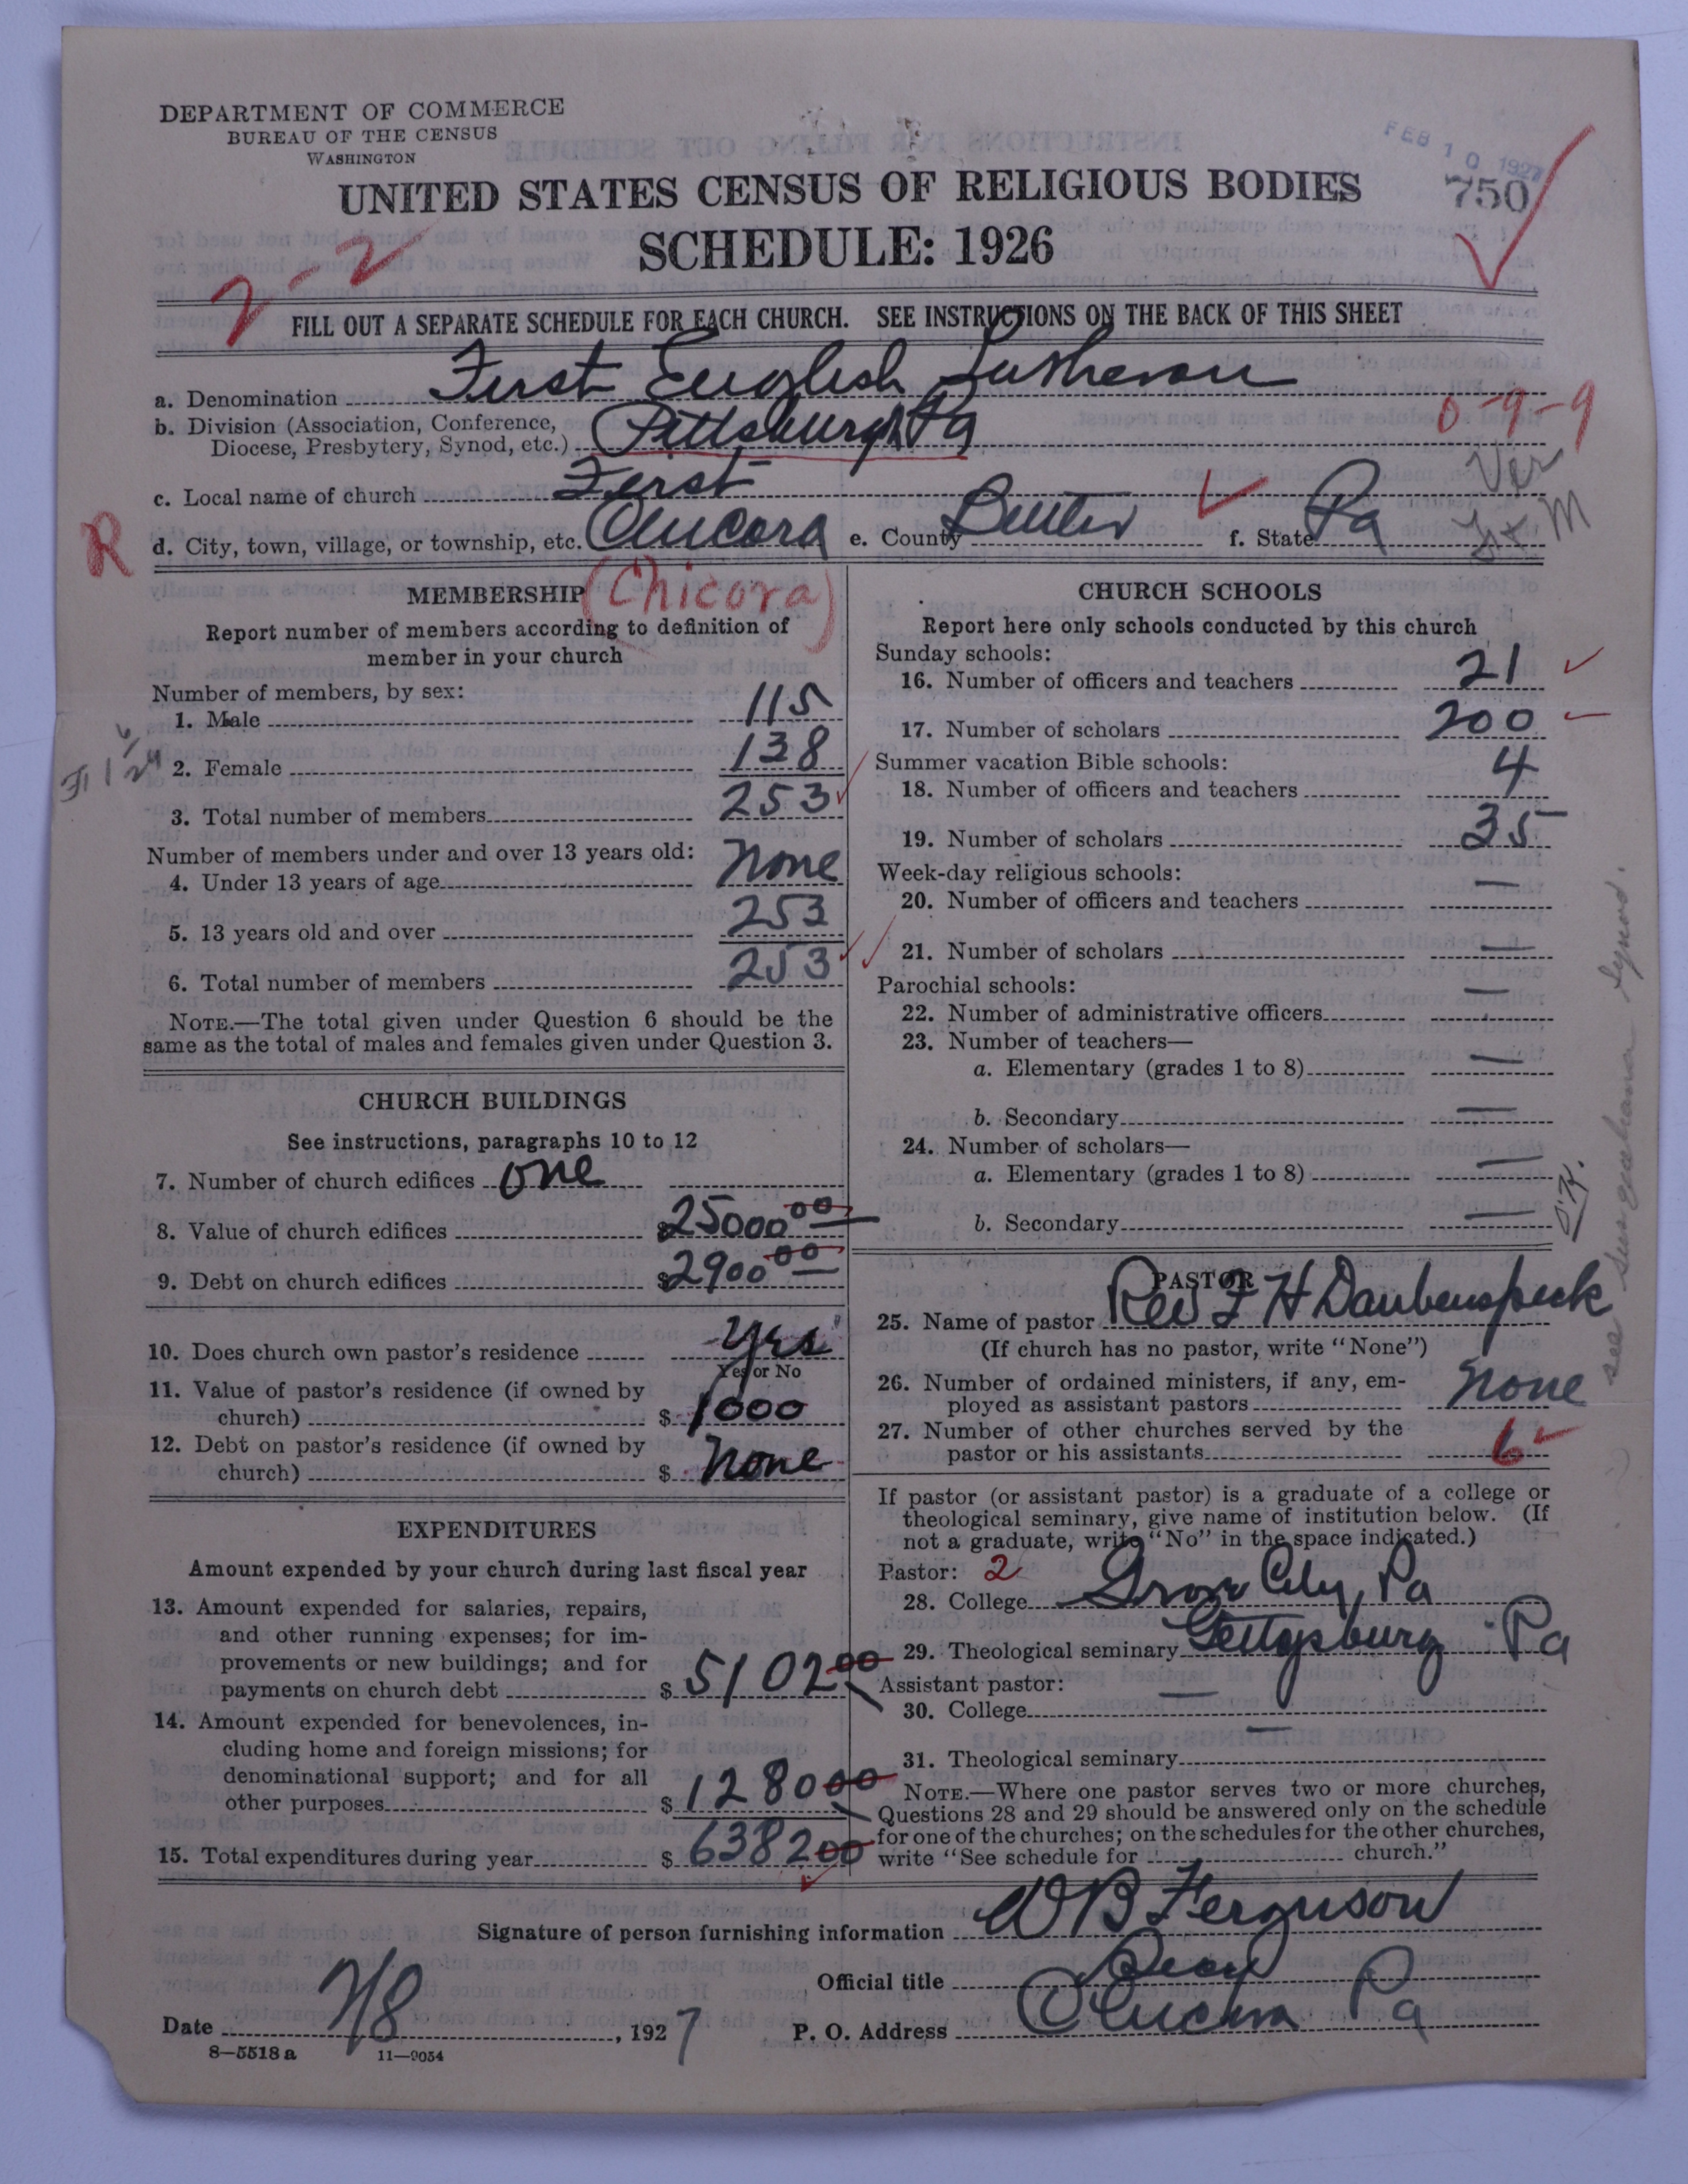 DEPARTMENT OF COMMERCE
BUREAU OF THE CENSUS
WASHINGTON
FEB 10 1927
750
UNITED STATES CENSUS OF RELIGIOUS BODIES
SCHEDULE: 1926
2-2
FILL OUT A SEPARATE SCHEDULE FOR EACH CHURCH. SEE INSTRUCTIONS ON THE BACK OF THIS SHEET
a. Denomination First English Lutheran
0-9-9
b. Division (Association, Conference, Diocese, Presbytery, Synod, etc.) Pittsburgh Pa
Ver
c. Local name of church First
L + M
R
d. City, town, village, or township, etc. Chicora e. County Butler f. State Pa
(Chicora)
MEMBERSHIP
Report number of members according to definition of
member in your church
Number of members, by sex:
1. Male 115
2. Female 138
3. Total number of members 253
Number of members under and over 13 years old:
4. Under 13 years of age None
5. 13 years old and over 253
6. Total number of members 253
NOTE.—The total given under Question 6 should be the
same as the total of males and females given under Question 3.
CHURCH BUILDINGS
See instructions, paragraphs 10 to 12
7. Number of church edifices one
8. Value of church edifices $25000 00
9. Debt on church edifices $2900 00
10. Does church own pastor's residence Yes
Yes or No
11. Value of pastor's residence (if owned by
church) $ 1000
12. Debt on pastor's residence (if owned by
church) $ None
EXPENDITURES
Amount expended by your church during last fiscal year
13. Amount expended for salaries, repairs,
and other running expenses; for im-
provements or new buildings; and for
payments on church debt $ 5102 00
14. Amount expended for benevolences, in-
cluding home and foreign missions; for
denominational support; and for all
other purposes $ 1280 00
15. Total expenditures during year $ 6382 00
CHURCH SCHOOLS
Report here only schools conducted by this church
Sunday schools:
16. Number of officers and teachers 21
17. Number of scholars 200
Summer vacation Bible schools:
18. Number of officers and teachers 4
19. Number of scholars 35
Week-day religious schools:
20. Number of officers and teachers —
21. Number of scholars —
Parochial schools:
22. Number of administrative officers —
23. Number of teachers—
a. Elementary (grades 1 to 8) —
b. Secondary —
24. Number of scholars—
a. Elementary (grades 1 to 8) —
b. Secondary —
O.K.
see Susquehanna Synod.
PASTOR
25. Name of pastor Rev F H Daubenspeck
(If church has no pastor, write "None")
26. Number of ordained ministers, if any, em-
ployed as assistant pastors None
27. Number of other churches served by the
pastor or his assistants 6
If pastor (or assistant pastor) is a graduate of a college or
theological seminary, give name of institution below. (If
not a graduate, write "No" in the space indicated.)
Pastor: 2
28. College Grove City, Pa
29. Theological seminary Gettysburg Pa
Assistant pastor:
30. College —
31. Theological seminary —
NOTE.—Where one pastor serves two or more churches,
Questions 28 and 29 should be answered only on the schedule
for one of the churches; on the schedules for the other churches,
write "See schedule for church."
Signature of person furnishing information W B Ferguson
Official title Secy
Date 2/8, 1927
P. O. Address Chicora Pa
8—5518 a
11—9054